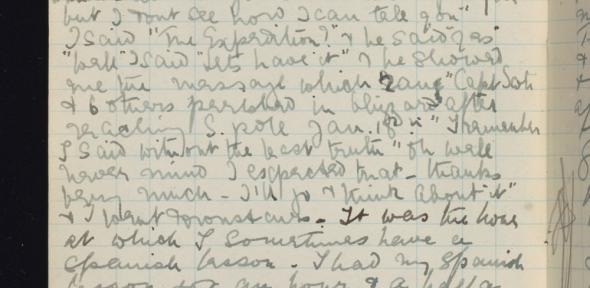 but I dont see how I can tell you"
I said "The Expedition?" & he said "yes"
"Well" I said "let's have it" & he showed
me the message which rang "Capt Scott
& 6 others perished in blizzard after
reaching S. pole Jan. 18th" I remember
I said without the least truth "oh well
never mind I expected that - thanks
very much - I'll go & think about it"
& I went downstairs. It was the hour
at which I sometimes have a
Spanish lesson. I had my Spanish
lesson for an hour & a half